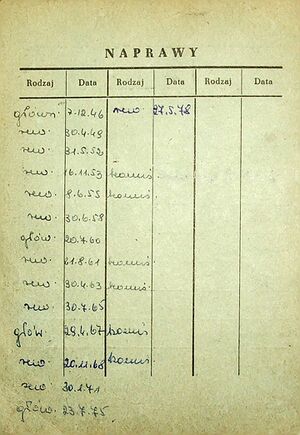 NAPRAWY
Rodzaj Data Rodzaj Data Rodzaj Data
główn. 7-12.46 rew 27.5.78
rew 30.4.49
rew 31.5.52
rew 16.11.53
rew 8.6.55
rew 30.6.58
głów. 20.7.60
rew 21.8.61
rew 30.4.63
rew 30.7.65
głów. 29.4.67
rew 20.11.68
rew 30.1.71
głów. 23.7.75.